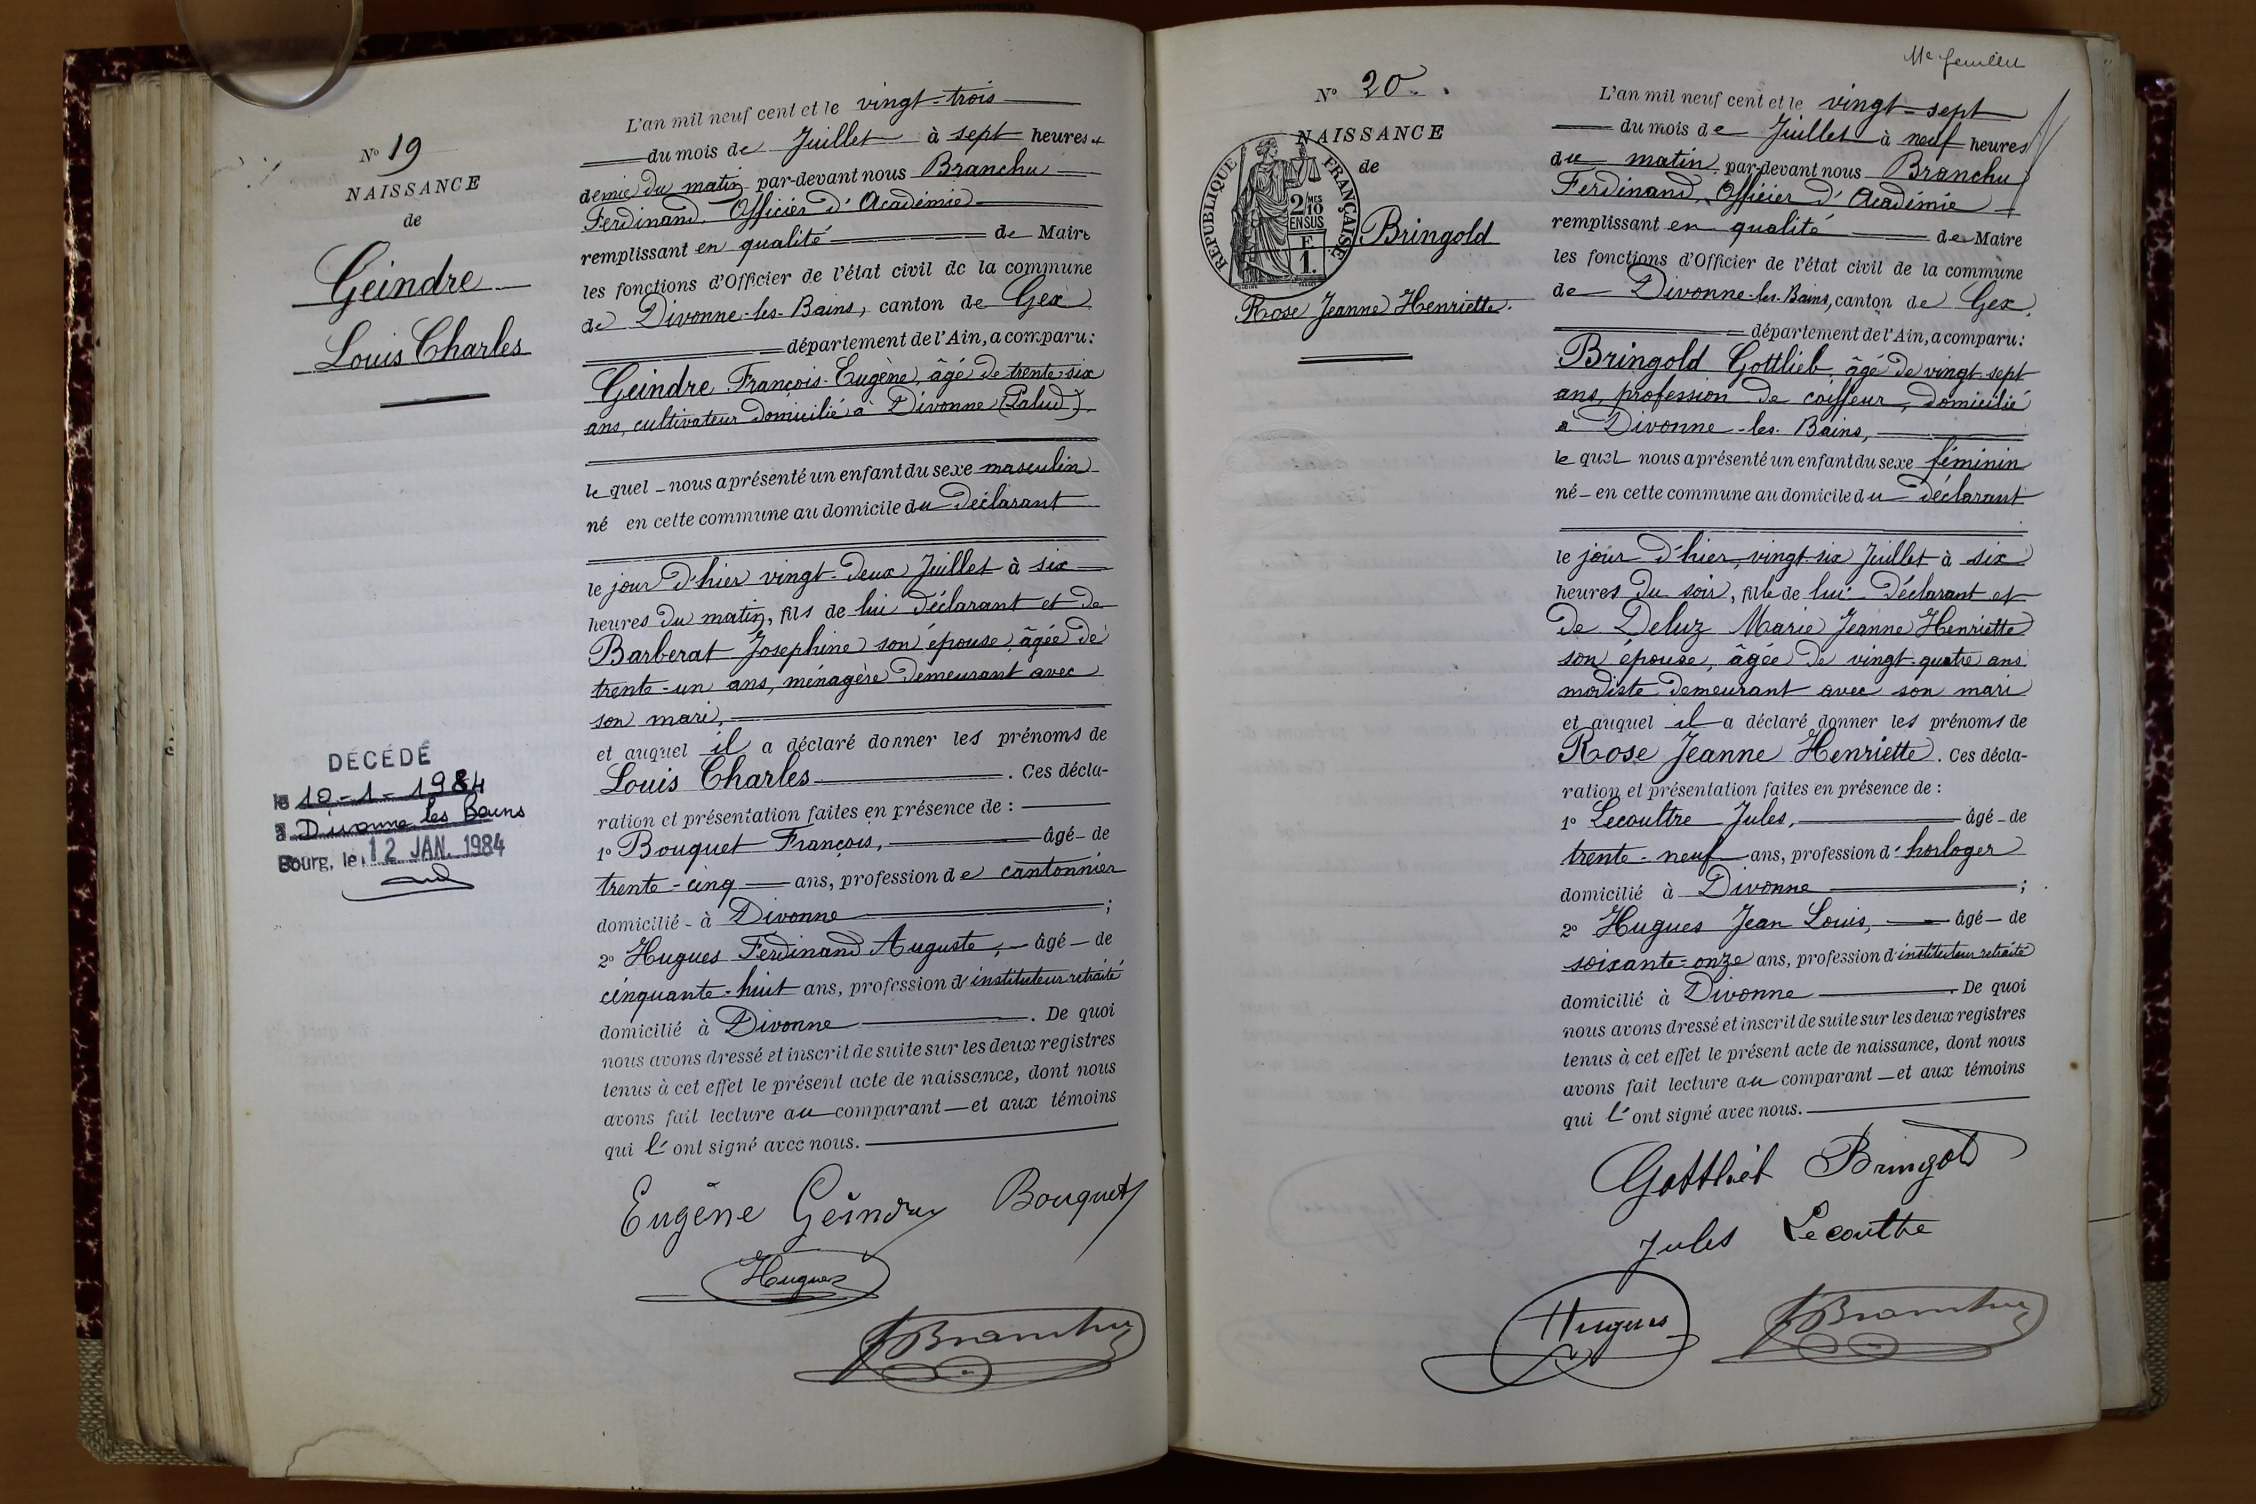 N° 19
NAISSANCE
de
Geindre
Louis Charles
DÉCÉDÉ
le 10-1-1984
à Divonne les Bains
Bourg, le 12 JAN. 1984
L'an mil neuf cent et le vingt-trois
du mois de Juillet à sept heures et
demie du matin par-devant nous Branchu
Ferdinand, Officier d'Académie
remplissant en qualité de Maire
les fonctions d'Officier de l'état civil de la commune
de Divonne-les-Bains, canton de Gex
département de l'Ain, a comparu:
Geindre François-Eugène, âgé de trente-six
ans, cultivateur domicilié à Divonne (Palud).
le quel nous a présenté un enfant du sexe masculin
né en cette commune au domicile du déclarant
le jour d'hier vingt-deux Juillet à six
heures du matin, fils de lui déclarant et de
Barberat Josephine son épouse, âgée de
trente-un ans, ménagère demeurant avec
son mari,
et auquel il a déclaré donner les prénoms de
Louis Charles. Ces décla-
ration et présentation faites en présence de :
1° Bouquet François, âgé de
trente-cinq ans, profession de cantonnier
domicilié à Divonne ;
2° Hugues Ferdinand Auguste, âgé de
cinquante-huit ans, profession d'instituteur retraité
domicilié à Divonne. De quoi
nous avons dressé et inscrit de suite sur les deux registres
tenus à cet effet le présent acte de naissance, dont nous
avons fait lecture au comparant et aux témoins
qui l'ont signé avec nous.
Eugène Geindre Bouquet
Hugues
Branchu
11e feuillet
N° 20
NAISSANCE
de
RÉPUBLIQUE FRANÇAISE
2/10 MES
EN SUS
F
1.
Bringold
Rose Jeanne Henriette.
L'an mil neuf cent et le vingt-sept
du mois de Juillet à neuf heures
du matin, par-devant nous Branchu
Ferdinand, Officier d'Académie
remplissant en qualité de Maire
les fonctions d'Officier de l'état civil de la commune
de Divonne-les-Bains, canton de Gex,
département de l'Ain, a comparu:
Bringold Gottlieb, âgé de vingt-sept
ans, profession de coiffeur, domicilié
à Divonne-les-Bains,
le quel nous a présenté un enfant du sexe féminin
né en cette commune au domicile du déclarant
le jour d'hier, vingt-six Juillet à six
heures du soir, fille de lui déclarant et
de Deluz Marie Jeanne Henriette
son épouse, âgée de vingt-quatre ans
modiste demeurant avec son mari
et auquel il a déclaré donner les prénoms de
Rose Jeanne Henriette. Ces décla-
ration et présentation faites en présence de :
1° Lecoultre Jules, âgé de
trente-neuf ans, profession d'horloger
domicilié à Divonne ;
2° Hugues Jean Louis, âgé de
soixante-onze ans, profession d'instituteur retraité
domicilié à Divonne. De quoi
nous avons dressé et inscrit de suite sur les deux registres
tenus à cet effet le présent acte de naissance, dont nous
avons fait lecture au comparant et aux témoins
qui l'ont signé avec nous.
Gottlieb Bringold
Jules Lecoultre
Hugues Branchu